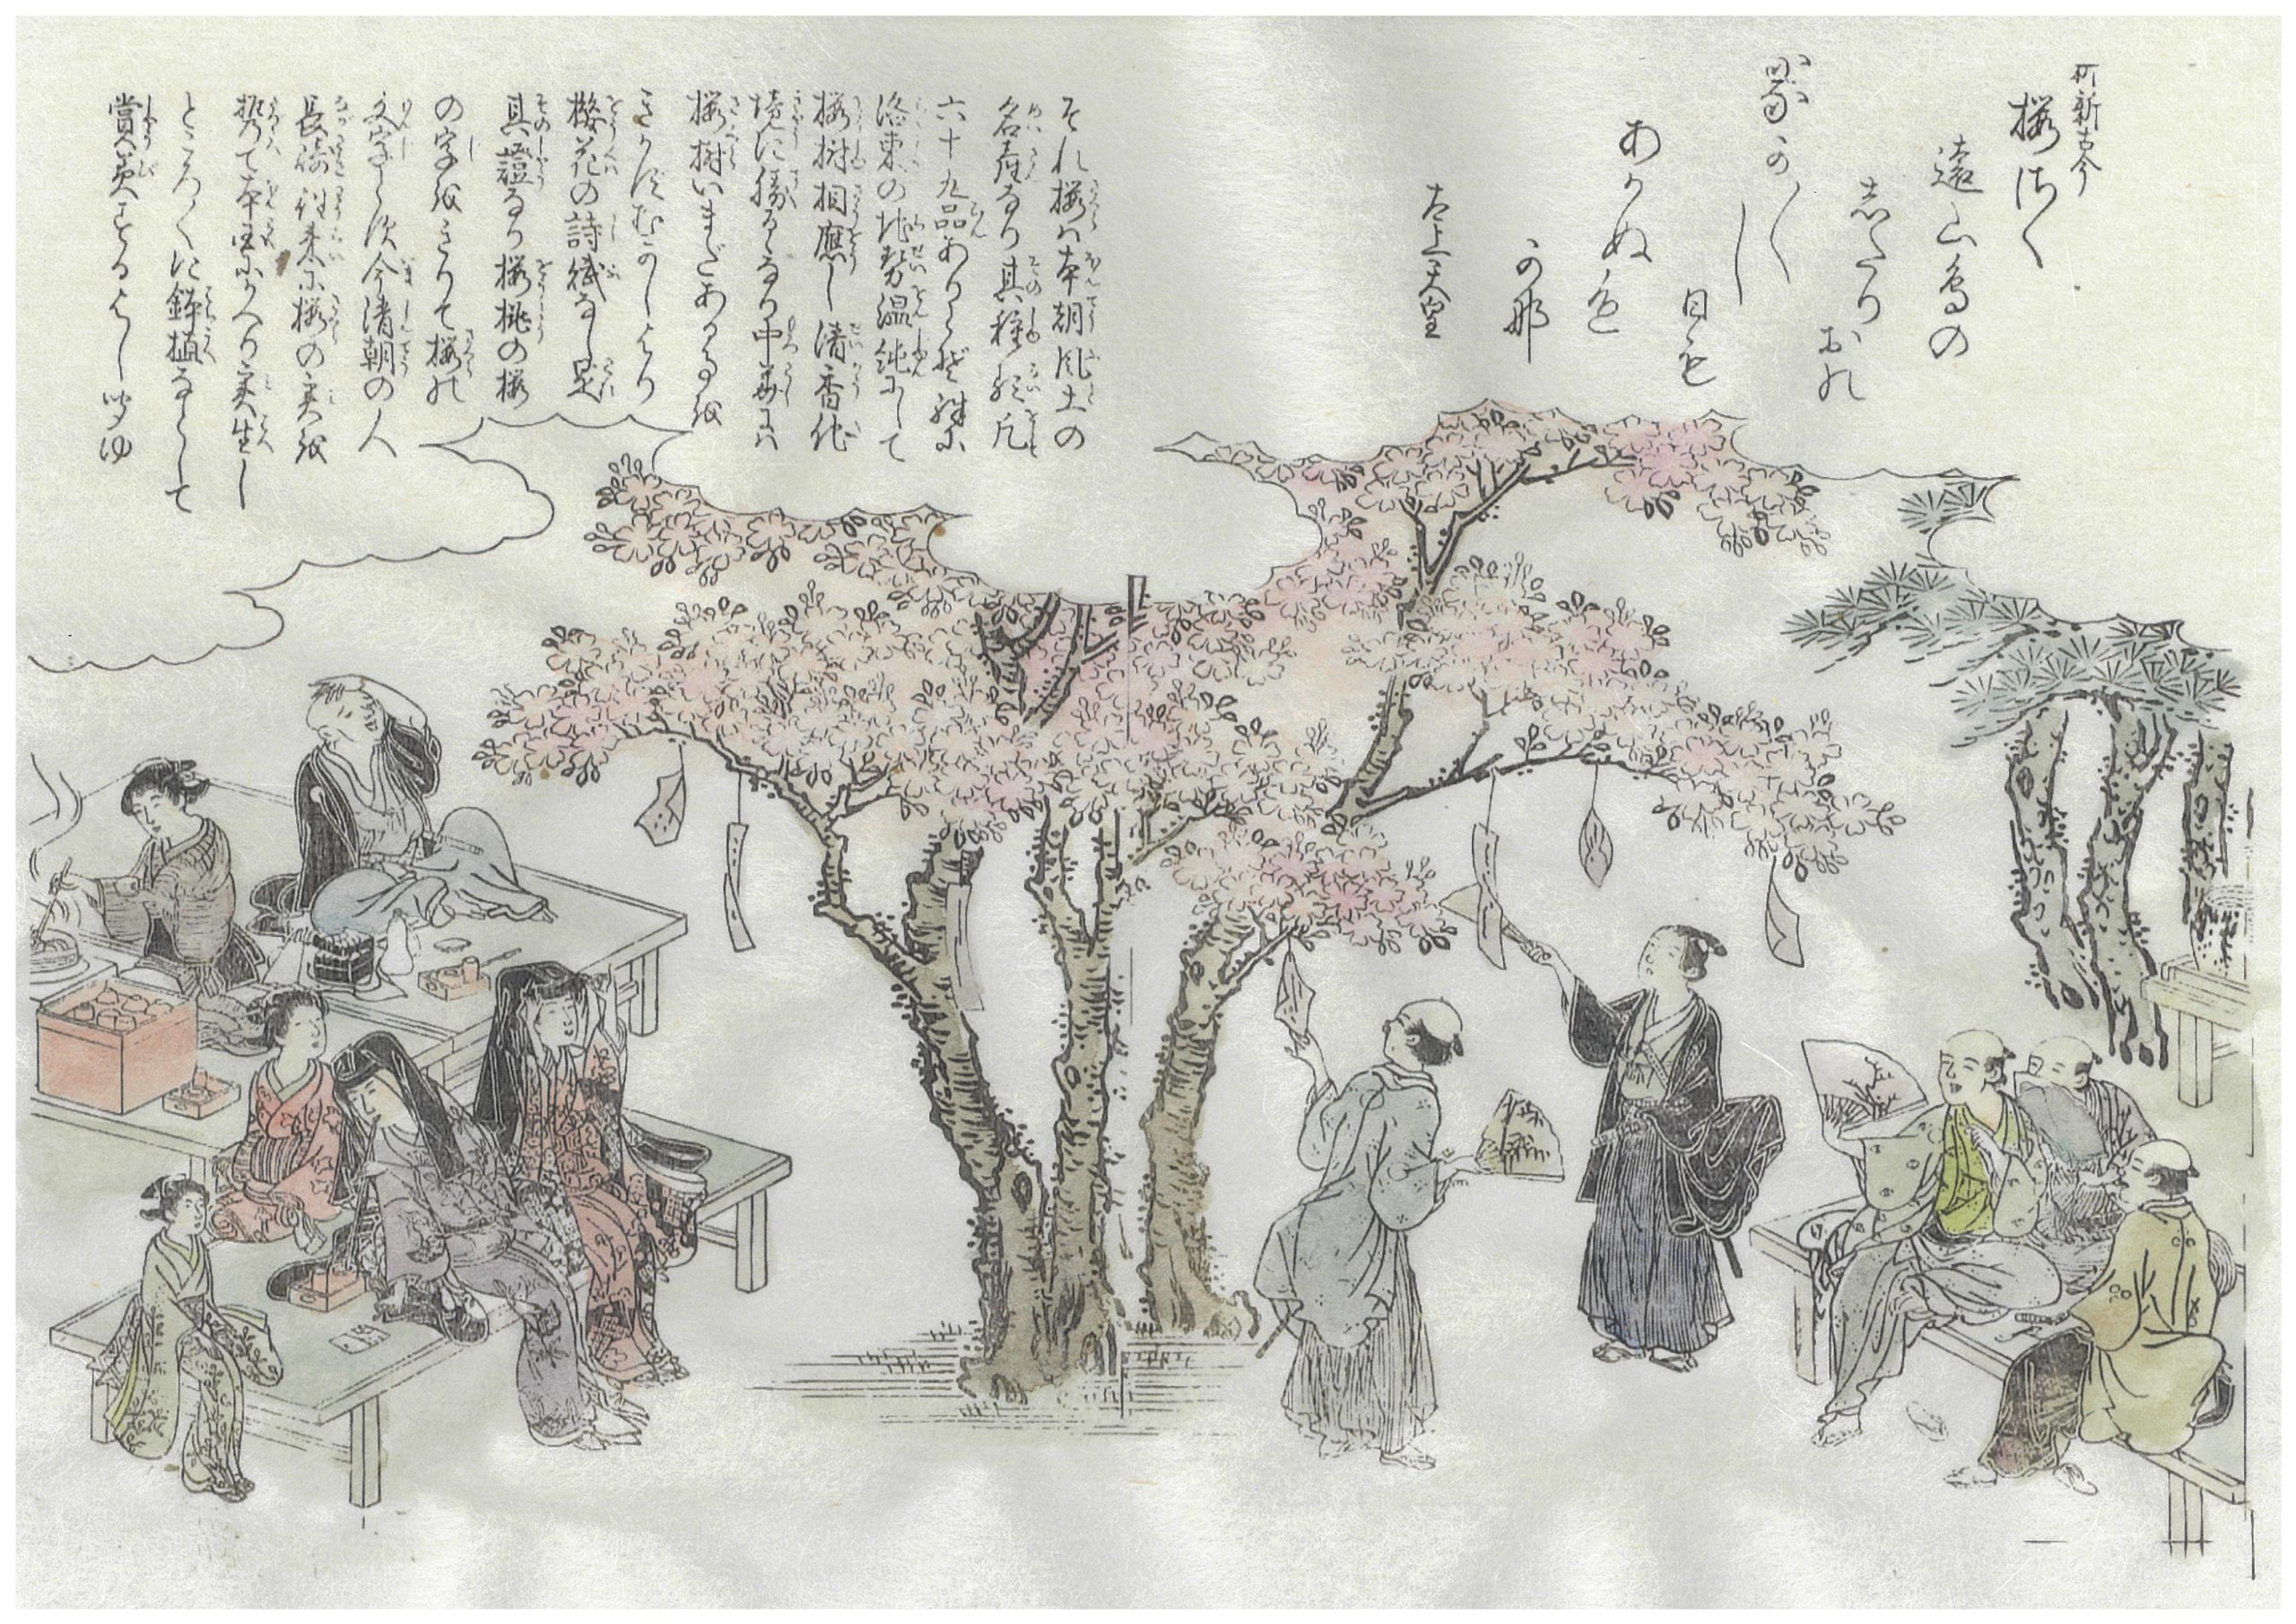 新古今
桜さく
遠山鳥の
志たり
おの
なか〱し
日も
あかぬ色
かな
太上天皇
それ桜は本朝風土の
名産なり其種類凡
六十九品ありとぞ殊に
洛東の地勢温純にして
桜樹相應し清香他
境に勝るゝなり中華には
桜樹いまだあることを
きかずむかしより
桜花の詩賦なし是
其證なり桜桃の桜
の字をかりて桜の
文字とす今清朝の人
長崎程来に桜の実を
携て本国にかへり実生し
ところ〲に鉢植などして
賞美するよし聞ゆ